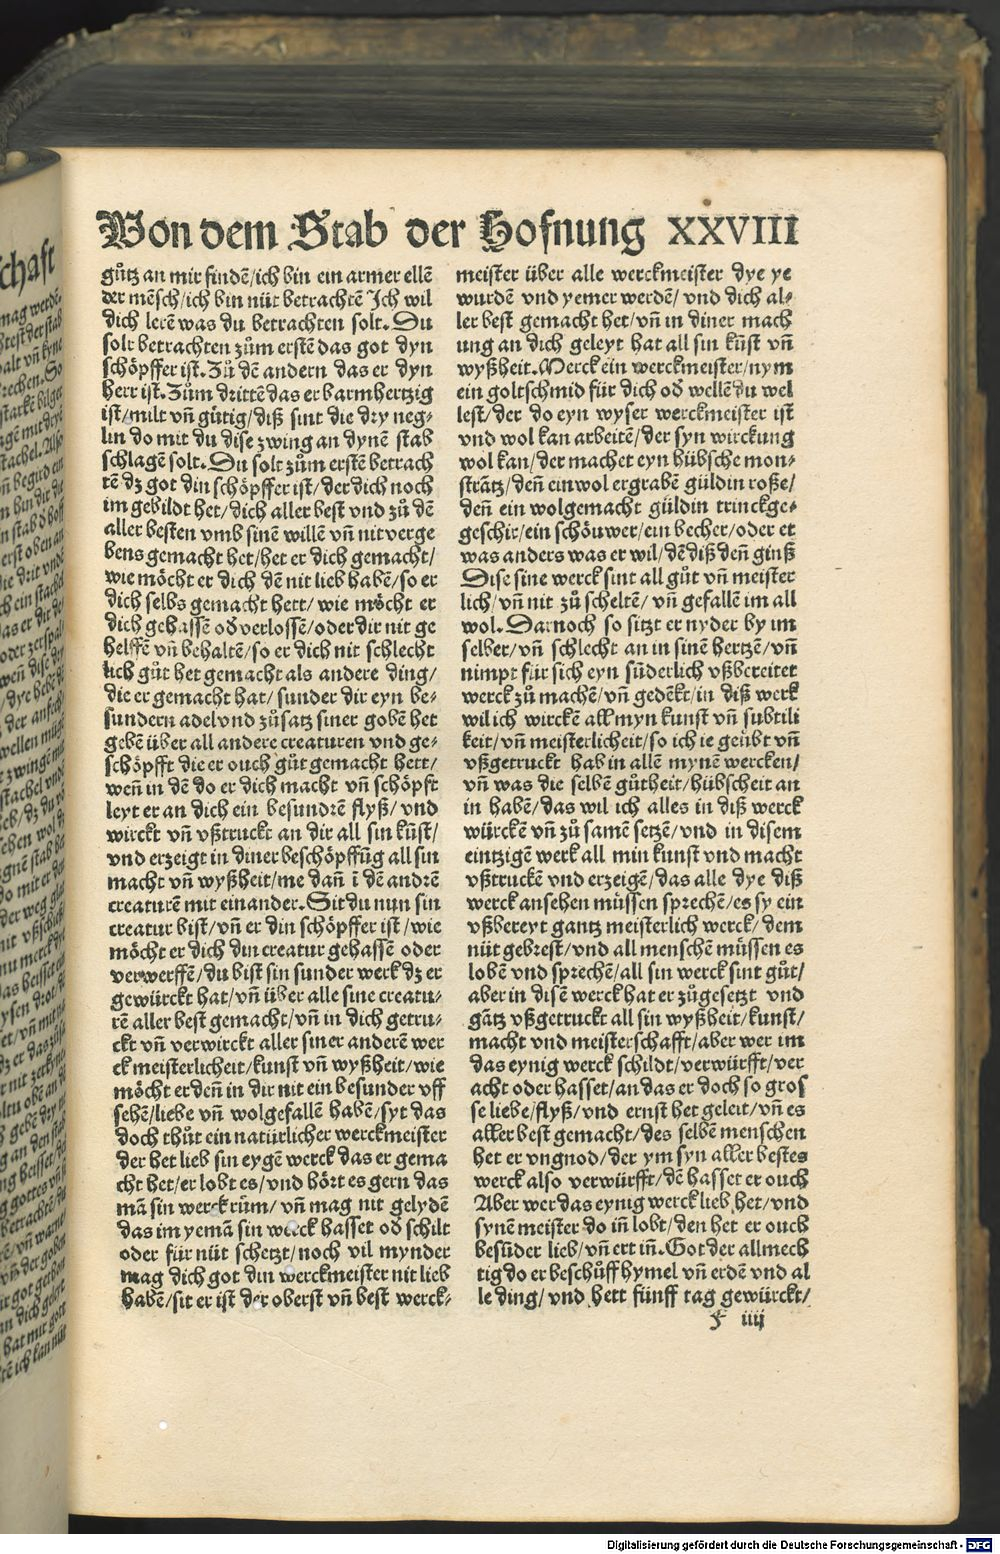 Von dem Stab der Hofnung XXVIII
guͦtz an mir findē/ich bin ein armer ellē
der mēsch/ich bin nüt betrachtē Ich wil
dich lerē was du betrachten solt. Du
solt betrachten zuͦm erstē das got dyn
schöpffer ist. Zuͦ dē andern das er dyn
herr ist. Zuͦm drittē das er barmhertzig
ist/milt vñ gütig/diß sint die dry neg-
lin do mit du dise zwing an dynē stab
schlagē solt. Du solt zuͦm erstē betrach
tē dz got din schöpffer ist/der dich noch
im gebildt het/dich aller best vnd zuͦ dē
aller besten vmb sinē willē vñ nit verge
bens gemacht het/het er dich gemacht/
wie möcht er dich dē nit lieb habē/so er
dich selbs gemacht hett/wie möcht er
dich gehassē od verlossē/oder dir nit ge
helffē vñ behaltē/so er dich nit schlecht
lich guͦt het gemacht als andere ding/
die er gemacht hat/sunder dir eyn be-
sundern adel vnd zuͦsatz siner gobē het
gebē über all andere creaturen vnd ge-
schöpfft die er ouch guͦt gemacht hett/
weñ in dē do er dich macht vñ schöpft
leyt er an dich ein besundrē flyß/vnd
wirckt vñ vßtruckt an dir all sin kūst/
vnd erzeigt in diner beschöpffūg all sin
macht vñ wyßheit/me dañ ī dē andrē
creaturē mit einander. Sit du nun sin
creatur bist/vñ er din schöpffer ist/wie
möcht er dich din creatur gehassē oder
verwerffē/du bist sin sunder werk dz er
gewürckt hat/vñ über alle sine creatu-
rē aller best gemacht/vñ in dich getru-
ckt vñ verwirckt aller siner anderē wer
ck meisterlicheit/kunst vñ wyßheit/wie
möcht er deñ in dir nit ein besunder vff
sehē/liebe vñ wolgefallē habē/syt das
doch thuͦt ein natürlicher werckmeister
der het lieb sin eygē werck das er gema
cht het/er lobt es/vnd hört es gern das
mā sin werck rüm/vñ mag nit gelydē
das im yemā sin werck hasset od schilt
oder für nüt schetzt/noch vil mynder
mag dich got din werckmeister nit lieb
habē/sit er ist der oberst vñ best werck-
meister über alle werckmeister dye ye
wurdē vnd yemer werdē/vnd dich al-
ler best gemacht het/vñ in diner mach
ung an dich geleyt hat all sin kūst vñ
wyßheit. Merck ein werckmeister/nym
ein goltschmid für dich od wellē du wel
lest/der do eyn wyser werckmeister ist
vnd wol kan arbeitē/der syn wirckung
wol kan/der machet eyn hübsche mon-
strātz/deñ ein wol ergrabē güldin roße/
deñ ein wolgemacht güldin trinckge-
geschir/ein schöuwer/ein becher/oder et
was anders was er wil/dē diß deñ ginß
Dise sine werck sint all guͦt vñ meister
lich/vñ nit zuͦ scheltē/vñ gefallē im all
wol. Darnoch so sitzt er nyder by im
selber/vñ schlecht an in sinē hertzē/vñ
nimpt für sich eyn sūderlich vßbereitet
werck zuͦ machē/vñ gedēkt/in diß werk
wil ich wirckē all myn kunst vñ subtili
keit/vñ meisterlicheit/so ich ie geübt vñ
vßgetruckt hab in allē mynē wercken/
vñ was die selbē guͦtheit/hübscheit an
in habē/das wil ich alles in diß werck
würckē vñ zuͦ samē setzē/vnd in disem
eintzigē werk all min kunst vnd macht
vßtruckē vnd erzeigē/das alle dye diß
werck ansehen müssen sprechē/es sy ein
vßbereyt gantz meisterlich werck/dem
nüt gebrest/vnd all menschē müssen es
lobē vnd sprechē/all sin werck sint guͦt/
aber in disē werck hat er zuͦgesetzt vnd
gātz vßgetruckt all sin wyßheit/kunst/
macht vnd meisterschafft/aber wer im
das eynig werck schildt/verwürfft/ver
acht oder hasset/an das er doch so gros
se liebe/flyß/vnd ernst het geleit/vñ es
aller best gemacht/des selbē menschen
het er vngnod/der ym syn aller bestes
werck also verwürfft/dē hasset er ouch
Aber wer das eynig werck lieb het/vnd
synē meister do iñ lobt/den het er ouch
besūder lieb/vñ ert iñ. Got der allmech
tig do er beschuͦff hymel vñ erdē vnd al
le ding/vnd hett fünff tag gewürckt/
F iiij
Digitalisierung gefördert durch die Deutsche Forschungsgemeinschaft - DFG